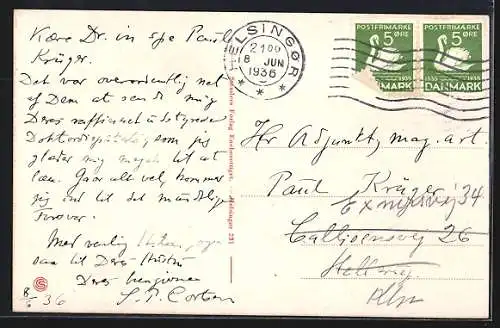 Kære Dr. in spe Paul
Krüger.
Det var overordentlig net
af Dem at sende mig
Deres
Doktordisputats, som jeg
glæder mig meget til at
læse. Gaar alt vel, kommer
jeg ind til det mundtlige
Forsvar.
Med venlig Hilsen, ogsaa
til Deres Hustru
Deres hengivne
8/6 36
HELSINGØR
21 00
8 JUN
1936
POSTFRIMÆRKE
5 ØRE
1935
DANMARK
POSTFRIMÆRKE
5 ØRE
1835 1935
DANMARK
Helsingør 231
Hr. Adjunkt, mag. art
Paul Krüger
34
Callisensvej 26
Hellerup